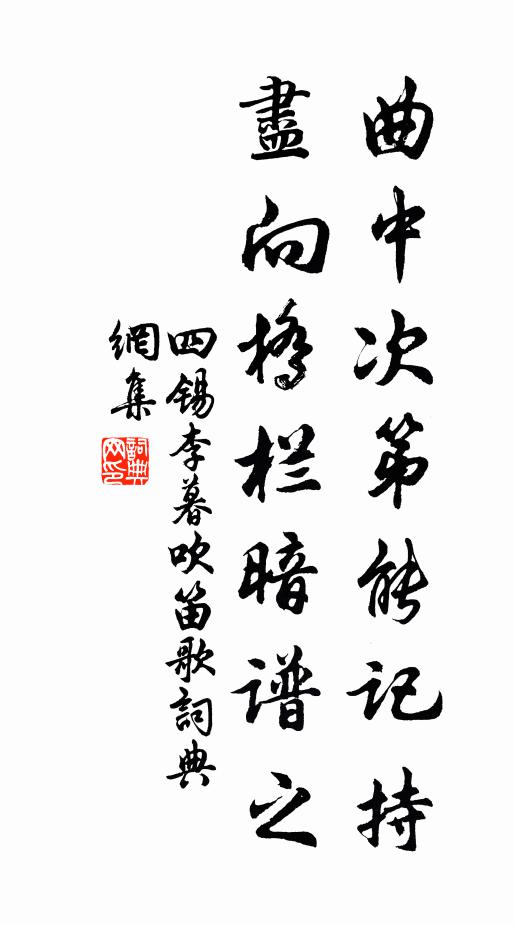 曲中次第能记持
盡向橋栏暗谱之
四锡李暮吹笛歌詞典
網集
詞典
网印